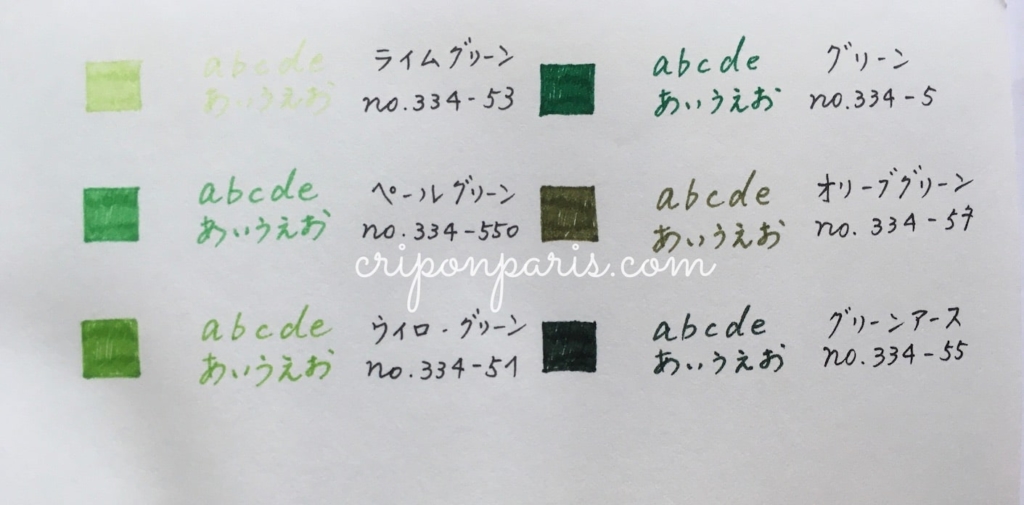 abcde
あいうえお
ライムグリーン
no.334-53
abcde
あいうえお
グリーン
no.334-5
abcde
あいうえお
ペールグリーン
no.334-550
abcde
あいうえお
オリーブグリーン
no. 334-57
criponparis.com
abcde
あいうえお
ウイロ-グリーン
no.334-51
abcde
あいうえお
グリーンアース
no.334-55